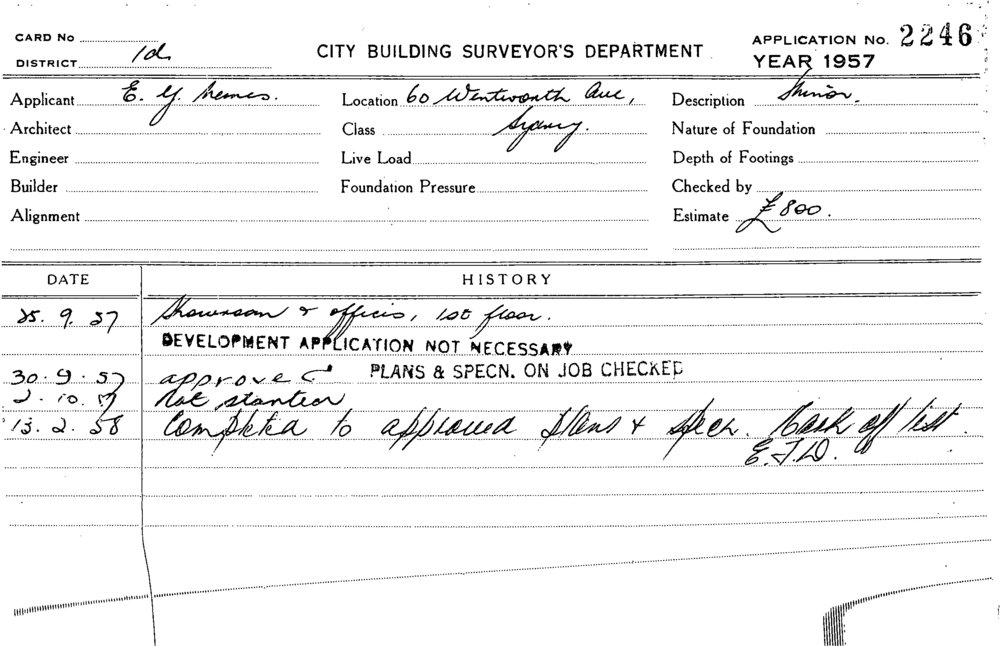 CARD No
DISTRICT 1d.
CITY BUILDING SURVEYOR'S DEPARTMENT
APPLICATION No. 2246
YEAR 1957
Applicant E. G. Nemes.
Architect
Engineer
Builder
Alignment
Location 60 Wentworth Ave,
Class Sydney.
Live Load
Foundation Pressure
Description Minor.
Nature of Foundation
Depth of Footings
Checked by
Estimate £800.
DATE HISTORY
25. 9. 57 Showroom & offices, 1st floor.
DEVELOPMENT APPLICATION NOT NECESSARY
30. 9. 57 approved PLANS & SPECN. ON JOB CHECKED
2. 10. 57 Not started
13. 2. 58 Completed to approved plans & specn. Mark off list.
E.J.D.